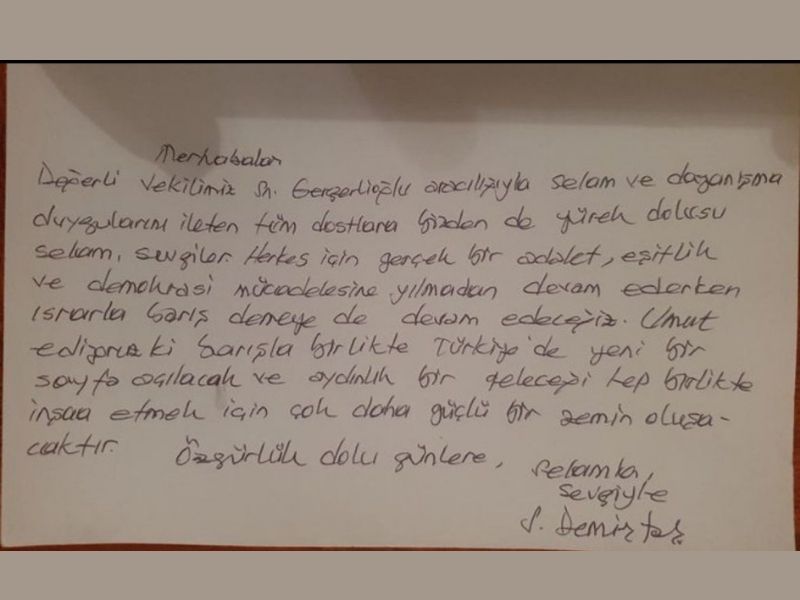 Merhabalar
Değerli Vekilimiz Sn. Gergerlioğlu aracılığıyla selam ve dayanışma
duygularını ileten tüm dostlara bizden de yürek dolusu
selam, sevgiler. Herkes için gerçek bir adalet, eşitlik
ve demokrasi mücadelesine yılmadan devam ederken
ısrarla barış demeye de devam edeceğiz. Umut
ediyoruz ki barışla birlikte Türkiye'de yeni bir
sayfa açılacak ve aydınlık bir geleceği hep birlikte
inşaa etmek için çok daha güçlü bir zemin oluşa-
caktır.
Özgürlük dolu günlere,
Selamla,
sevgiyle
S. Demirtaş